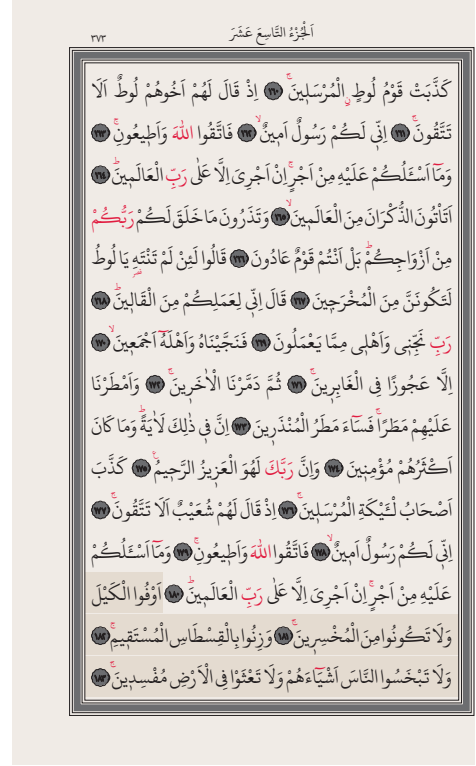 اَلْجُزْءُ التَّاسِعَ عَشَرَ
٣٧٣
كَذَّبَتْ قَوْمُ لُوطٍ ࣙالْمُرْسَلٖينَۚ ﴿١٦٠﴾ اِذْ قَالَ لَهُمْ اَخُوهُمْ لُوطٌ اَلَا
تَتَّقُونَۚ ﴿١٦١﴾ اِنّٖي لَكُمْ رَسُولٌ اَمٖينٌۙ ﴿١٦٢﴾ فَاتَّقُوا اللّٰهَ وَاَطٖيعُونِۚ ﴿١٦٣﴾
وَمَٓا اَسْـَٔلُكُمْ عَلَيْهِ مِنْ اَجْرٍۚ اِنْ اَجْرِيَ اِلَّا عَلٰى رَبِّ الْعَالَمٖينَۜ ﴿١٦٤﴾
اَتَأْتُونَ الذُّكْرَانَ مِنَ الْعَالَمٖينَۙ ﴿١٦٥﴾ وَتَذَرُونَ مَا خَلَقَ لَكُمْ رَبُّكُمْ
مِنْ اَزْوَاجِكُمْۜ بَلْ اَنْتُمْ قَوْمٌ عَادُونَ ﴿١٦٦﴾ قَالُوا لَئِنْ لَمْ تَنْتَهِ يَا لُوطُ
لَتَكُونَنَّ مِنَ الْمُخْرَجٖينَ ﴿١٦٧﴾ قَالَ اِنّٖي لِعَمَلِكُمْ مِنَ الْقَالٖينَۜ ﴿١٦٨﴾
رَبِّ نَجِّنٖي وَاَهْلٖي مِمَّا يَعْمَلُونَ ﴿١٦٩﴾ فَنَجَّيْنَاهُ وَاَهْلَهُٓ اَجْمَعٖينَۙ ﴿١٧٠﴾
اِلَّا عَجُوزًا فِي الْغَابِرٖينَۚ ﴿١٧١﴾ ثُمَّ دَمَّرْنَا الْاٰخَرٖينَۚ ﴿١٧٢﴾ وَاَمْطَرْنَا
عَلَيْهِمْ مَطَرًاۚ فَسَٓاءَ مَطَرُ الْمُنْذَرٖينَ ﴿١٧٣﴾ اِنَّ فٖي ذٰلِكَ لَاٰيَةًۜ وَمَا كَانَ
اَكْثَرُهُمْ مُؤْمِنٖينَ ﴿١٧٤﴾ وَاِنَّ رَبَّكَ لَهُوَ الْعَزٖيزُ الرَّحٖيمُ۟ ﴿١٧٥﴾ كَذَّبَ
اَصْحَابُ لْـَٔيْكَةِ الْمُرْسَلٖينَۚ ﴿١٧٦﴾ اِذْ قَالَ لَهُمْ شُعَيْبٌ اَلَا تَتَّقُونَۚ ﴿١٧٧﴾
اِنّٖي لَكُمْ رَسُولٌ اَمٖينٌۙ ﴿١٧٨﴾ فَاتَّقُوا اللّٰهَ وَاَطٖيعُونِۚ ﴿١٧٩﴾ وَمَٓا اَسْـَٔلُكُمْ
عَلَيْهِ مِنْ اَجْرٍۚ اِنْ اَجْرِيَ اِلَّا عَلٰى رَبِّ الْعَالَمٖينَۜ ﴿١٨٠﴾ اَوْفُوا الْكَيْلَ
وَلَا تَكُونُوا مِنَ الْمُخْسِرٖينَۚ ﴿١٨١﴾ وَزِنُوا بِالْقِسْطَاسِ الْمُسْتَقٖيمِۚ ﴿١٨٢﴾
وَلَا تَبْخَسُوا النَّاسَ اَشْيَٓاءَهُمْ وَلَا تَعْثَوْا فِي الْاَرْضِ مُفْسِدٖينَۚ ﴿١٨٣﴾